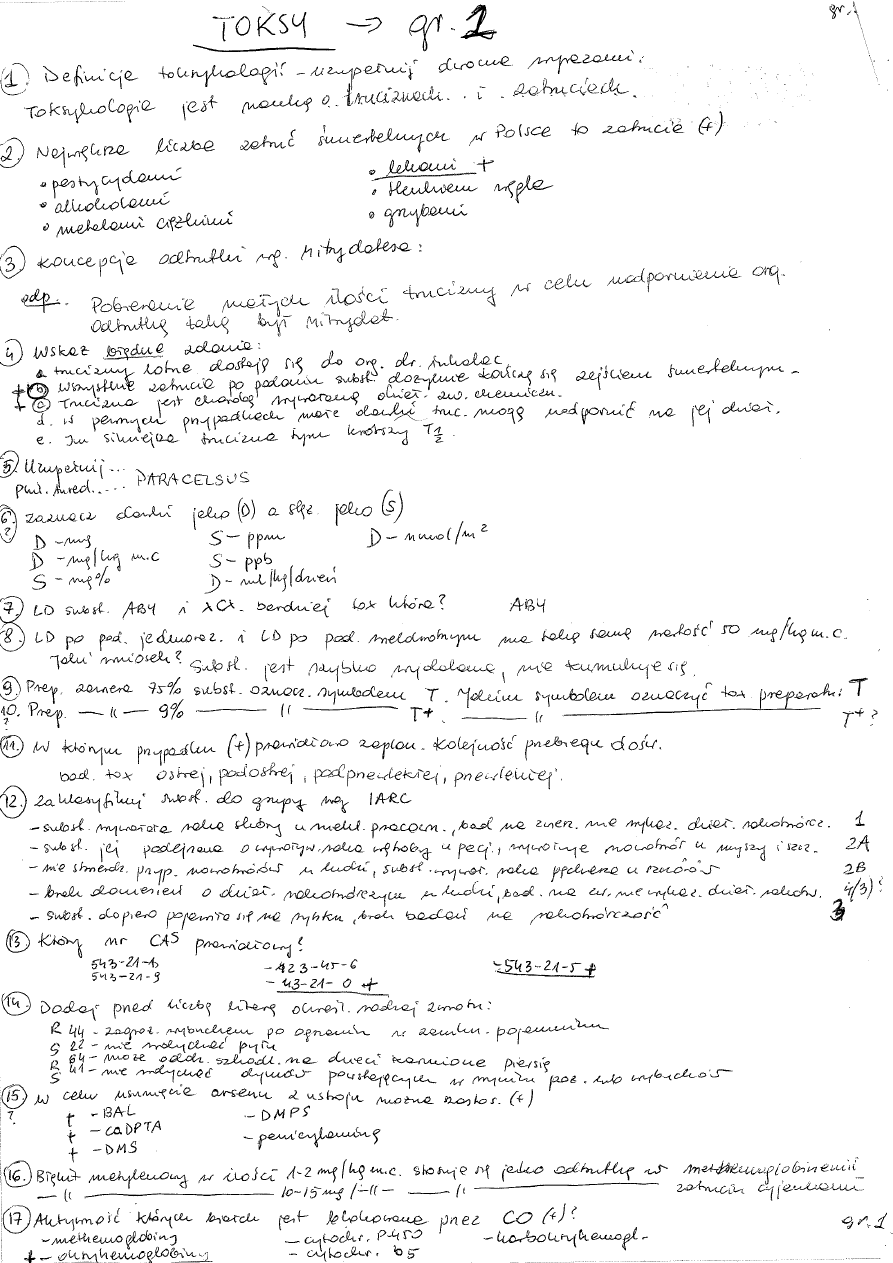 TOKSY → gr. 1
gr. 1
1. Definicje toksykologii – uzupełnij dwoma wyrazami:
Toksykologia jest nauką o truciznach.. i .zatruciach.
2. Największa liczba zatruć śmiertelnych w Polsce to zatrucie (+)
• pestycydami • lekami +
• alkoholami • tlenkiem węgla
• metalami ciężkimi • grzybami
3. Koncepcja odtrutki wg. Mitrydatesa:
odp. Pobieranie małych ilości trucizny w celu uodpornienia org.
Odtrutką taką był Mitrydat.
4. Wskaż błędne zdanie:
a. trucizny lotne dostają się do org. dr. inhalac
+ b. Wszystkie zatrucia po podaniu subst. dożylnie kończą się zejściem śmiertelnym –
+ c. Trucizna jest chorobą wywołaną dział. zw. chemiczn.
d. w pewnych przypadkach małe dawki truc. mogą uodpornić na jej dział.
e. Im silniejsza trucizna tym krótszy T½.
5. Uzupełnij...
Phil. Aured..... PARACELSUS
6. zaznacz dawki jako (D) a stęż. jako (S)
? D – mg S – ppm D – nmol/m²
D – mg/kg m.c S – ppb
S – mg% D – ml/kg/dzień
7. LD subst. AB4 i XCX. bardziej tox która? AB4
8. LD po pod. jednoraz. i LD po pod. wielokrotnym ma taką samą wartość 50 mg/kg m.c.
Jaki wniosek? Subst. jest szybko wydalana, nie kumuluje się.
9. Prep. zawiera 75% subst. oznacz. symbolem T. Jakim symbolem oznaczyć tox preparatu: T
10. Prep. — ıı — 9% ——— ıı ——— T+. ——— ıı ——— T+ ?
?
11. W którym przypadku (+) prawidłowo zaplan. kolejność przebiegu dośw.
bad. tox ostrej, podostrej, podprzewlekłej, przewlekłej.
12. Zaklasyfikuj subst. do grupy wg IARC
– subst. wywołała raka skóry u wielu pracown., bad na zwierz. nie wykaz. dział. rakotwórcz. 1
– subst. jej podejrzana o wywoływ. raka wątroby u pacj., wywołuje nowotwór u myszy i szcz. 2A
– nie stwierdz. przyp. nowotworów u ludzi, subst. wywoł. raka pęcherza u szczurów 2B
– brak doniesień o dział. rakotwórczym u ludzi, bad. na zw. nie wykaz. dział. rakotw. 4(3)?
– subst. dopiero pojawiła się na rynku, brak badań na rakotwórczość 3
13. Który nr CAS prawidłowy?
543-21-1 – 423-45-6 – 543-21-5 +
543-21-9 – 43-21-0 +
14. Dodaj przed liczbą literę określ. rodzaj zwrotu:
R 44 – zagroż. wybuchem po ogrzaniu w zamkn. pojemniku
S 22 – nie wdychać pyłu
R 64 – może oddz. szkodl. na dzieci karmione piersią
S 41 – nie wdychać dymów powstających w wyniku poż. lub wybuchów
15. W celu usunięcia arsenu z ustroju można zastos. (+)
? + – BAL – DMPS
+ – CaDPTA – penicylaminę
+ – DMS
16. Błękit metylenowy w ilości 1-2 mg/kg m.c. stosuje się jako odtrutkę w methemoglobinemii
— ıı ——— 10-15 mg/–ıı– — ıı ——— zatruciu cyjankami
17. Aktywność których białek jest blokowana przez CO (+)? gr. 1
– methemoglobiny – cytochr. P-450 – karboksyhemogl–
+ – oksyhemoglobiny – cytochr. b5